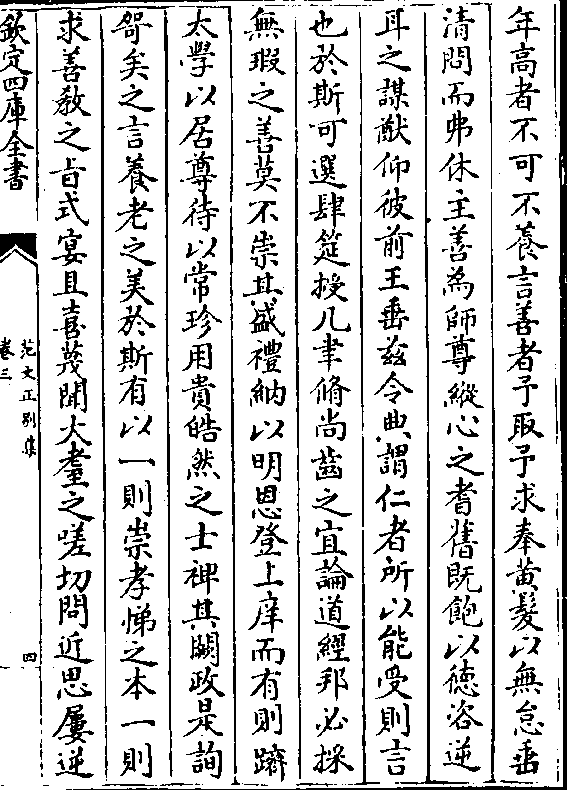 年高者不可不養言善者予取予求奉黄髮以無怠垂
清問而弗休主善為師尊縱心之耆舊既飽以徳咨逆
耳之謀猷仰彼前王垂兹令典謂仁者所以能受則言
也於斯可選肆筵授几聿脩尚齒之宜論道經邦必採
無瑕之善莫不崇其盛禮納以明恩登上庠而有則躋
太學以居尊待以常珍用貴皓然之士裨其闕政是詢
咢矣之言養老之美於斯有以一則崇孝悌之本一則
求善敎之㫖式宴且喜蔑聞大耋之嗟切問近思屢逆
欽定四庫全書
范文正别集
卷三
四